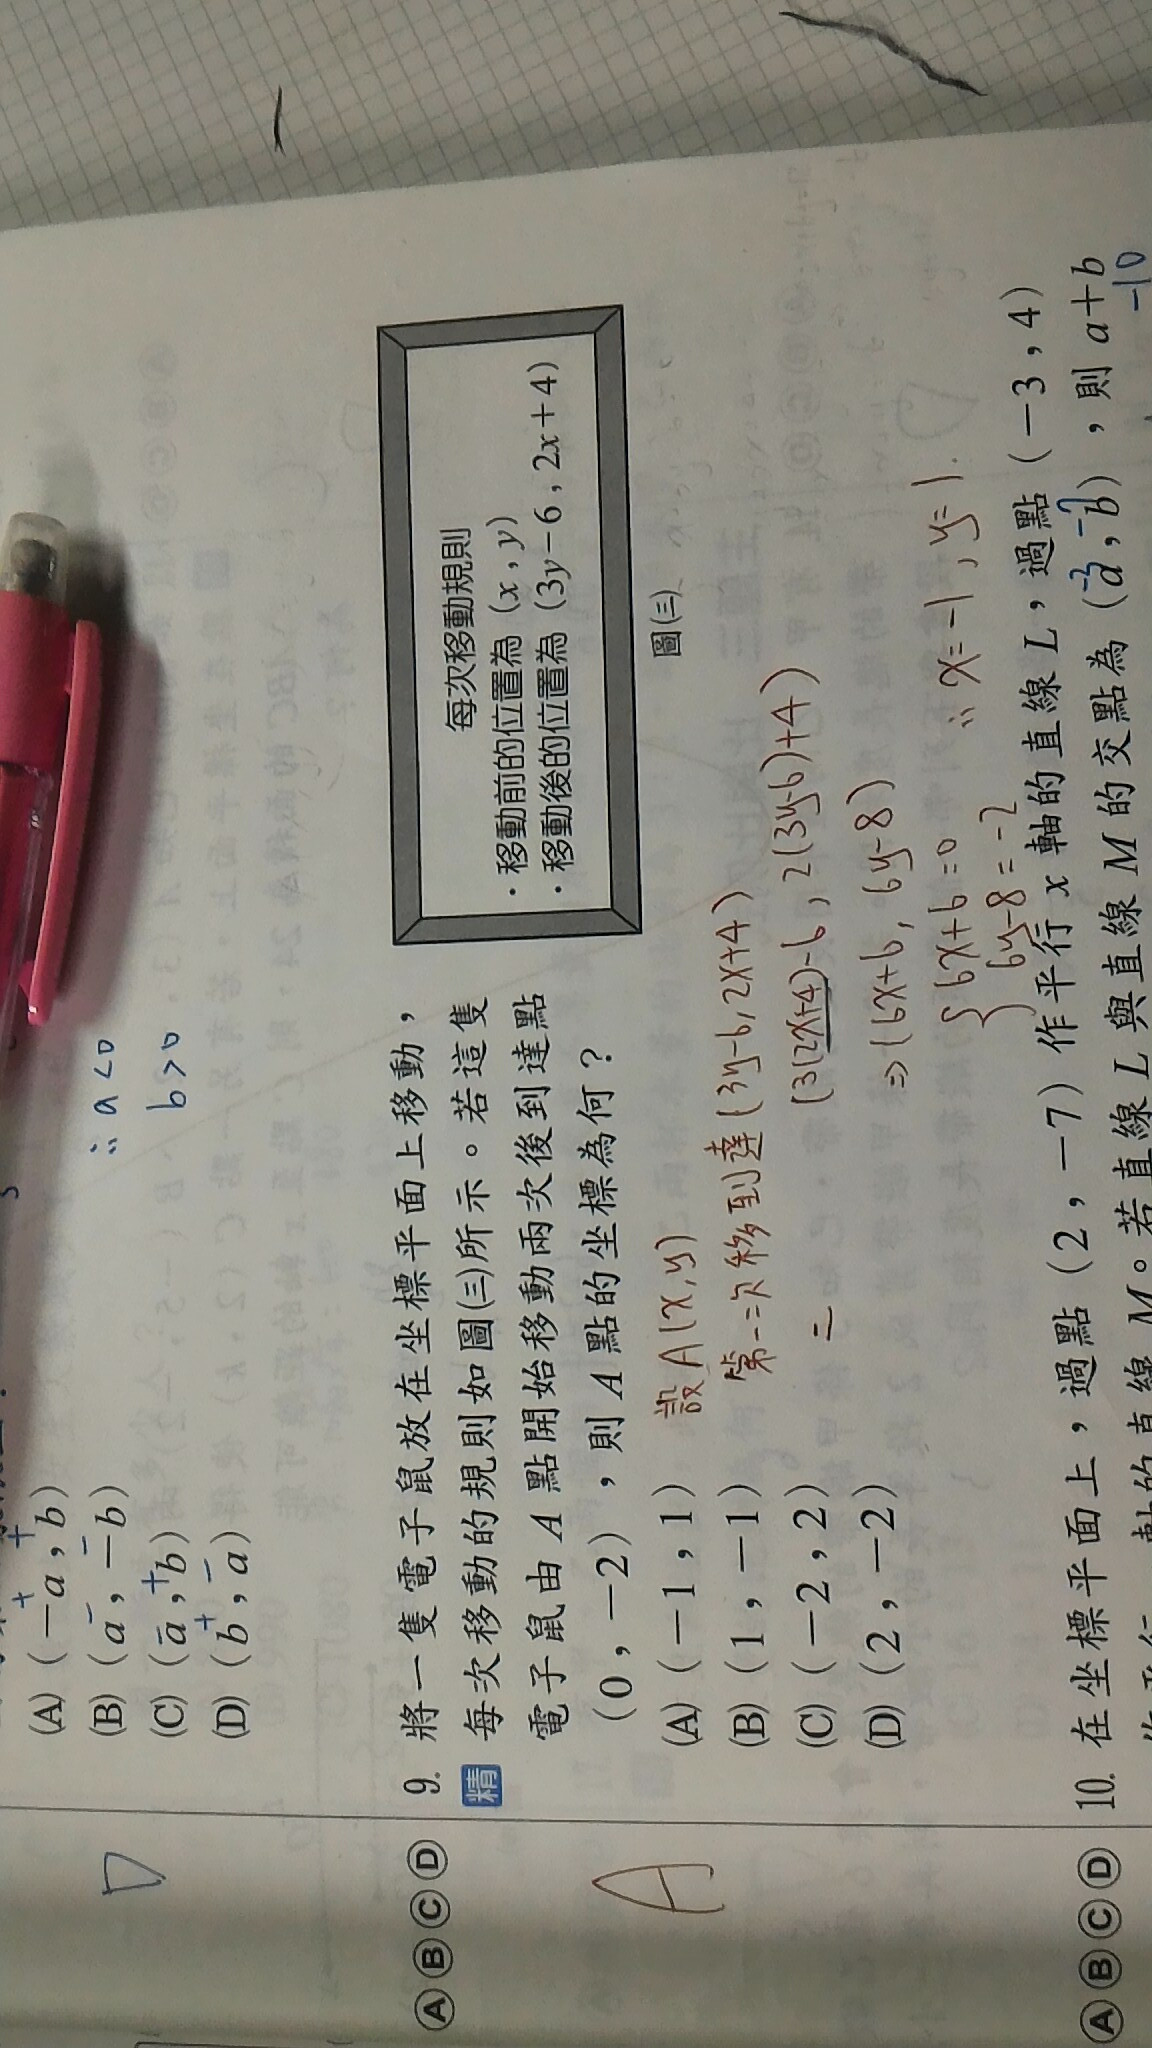 ∴ a<0
b>0
(A) (−a , b)
+ +
(B) (a , −b)
− −
(C) (a , b)
− +
(D) (b , a)
+ −
D
Ⓐ Ⓑ Ⓒ Ⓓ
9. 將一隻電子鼠放在坐標平面上移動，
精 每次移動的規則如圖(三)所示。若這隻
電子鼠由 A 點開始移動兩次後到達點
(0 , −2)，則 A 點的坐標為何？
(A) (−1 , 1)
(B) (1 , −1)
(C) (−2 , 2)
(D) (2 , −2)
A
每次移動規則
・移動前的位置為 (x , y)
・移動後的位置為 (3y−6 , 2x+4)
圖(三)
設A(x,y)
第一次移到達(3y-6, 2x+4)
二 (3(2x+4)-6, 2(3y-6)+4)
⇒(6x+6, 6y-8)
{6x+6=0
6y-8=-2
∴ x=-1, y=1.
Ⓐ Ⓑ Ⓒ Ⓓ
10. 在坐標平面上，過點 (2 , −7) 作平行 x 軸的直線 L，過點 (−3 , 4)
軸的直線 M。若直線 L 與直線 M 的交點為 (a , b)，則 a+b
-3 -7
-10